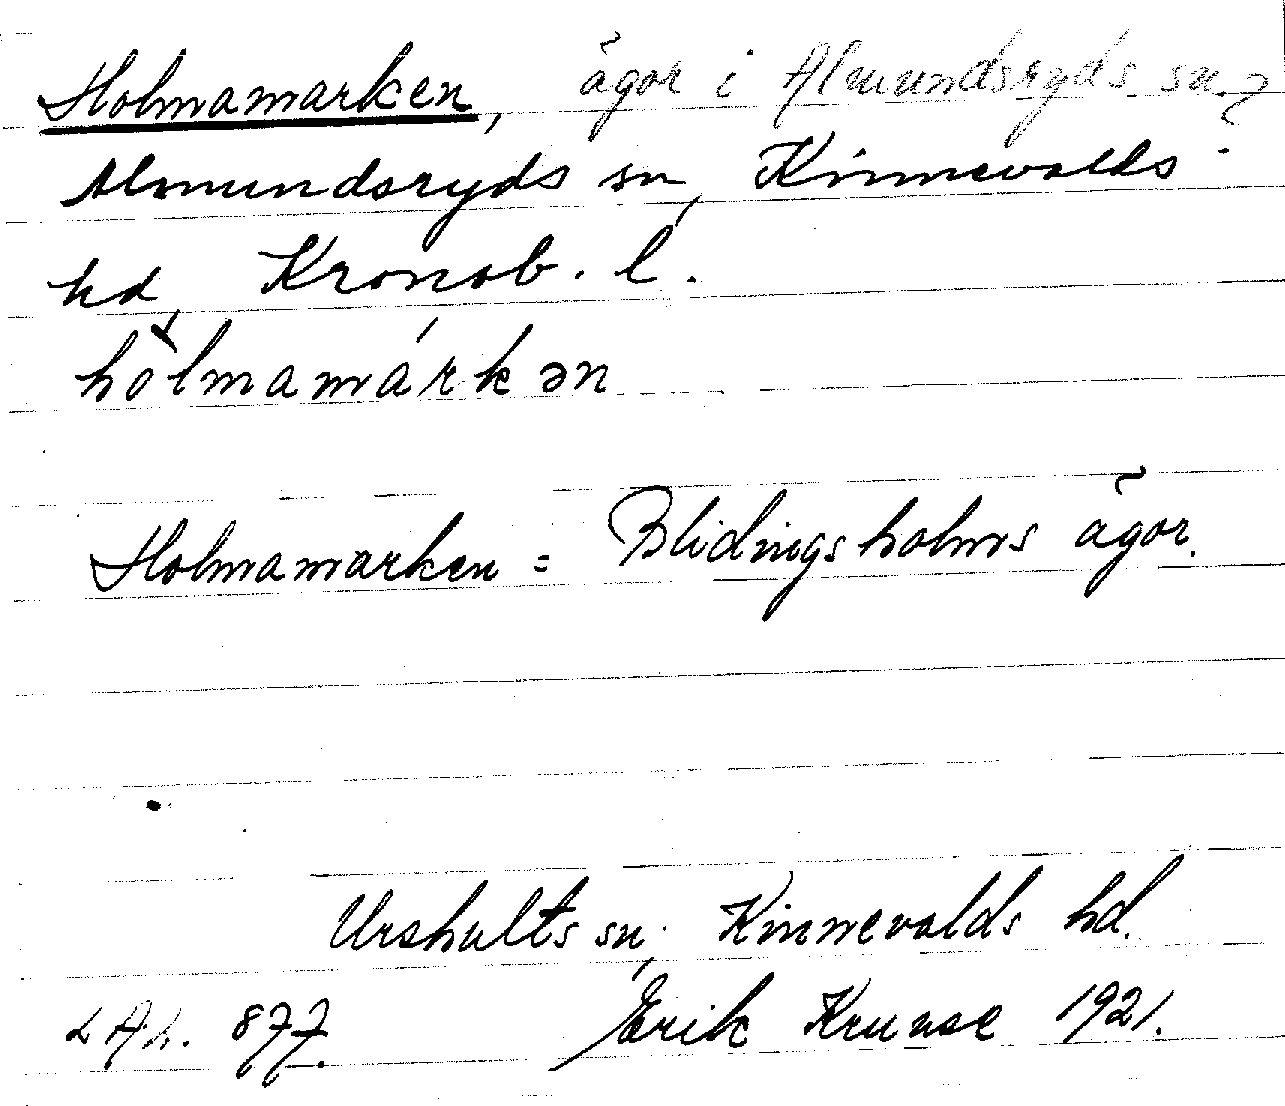 Holmamarken, ägor i Almundsryds sn.?
Almundsryds sn, Kinnevalds
hd, Kronob. l.
hòlmamárkən
Holmamarken = Blidingsholms ägor.
Urshults sn, Kinnevalds hd.
LAL. 877. Erik Kruuse 1921.